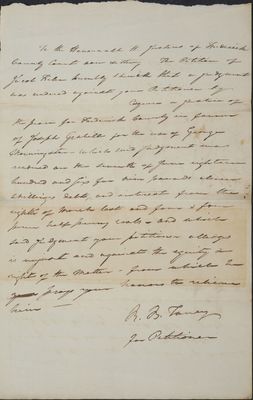 To the Honourable the Justices of Frederick
County Court now sitting. The Petition of
Jacob humbly sheweth that a judgment
was rendered against your Petitioner by
Esquire a justice of
the peace for Frederick County in favour
of Joseph for the use of George
which said judgment was
rendered on the seventh of June eighteen
hundred and six for nine pounds eleven
shillings debt, and interest from the
eighth of March last and four &
pence half penny costs and which
said Judgment your petitioner alledges
is unjust and against the equity &
right of the Matter - from which he
prays your honors to relieve
him
R. B. Taney
for Petitioner